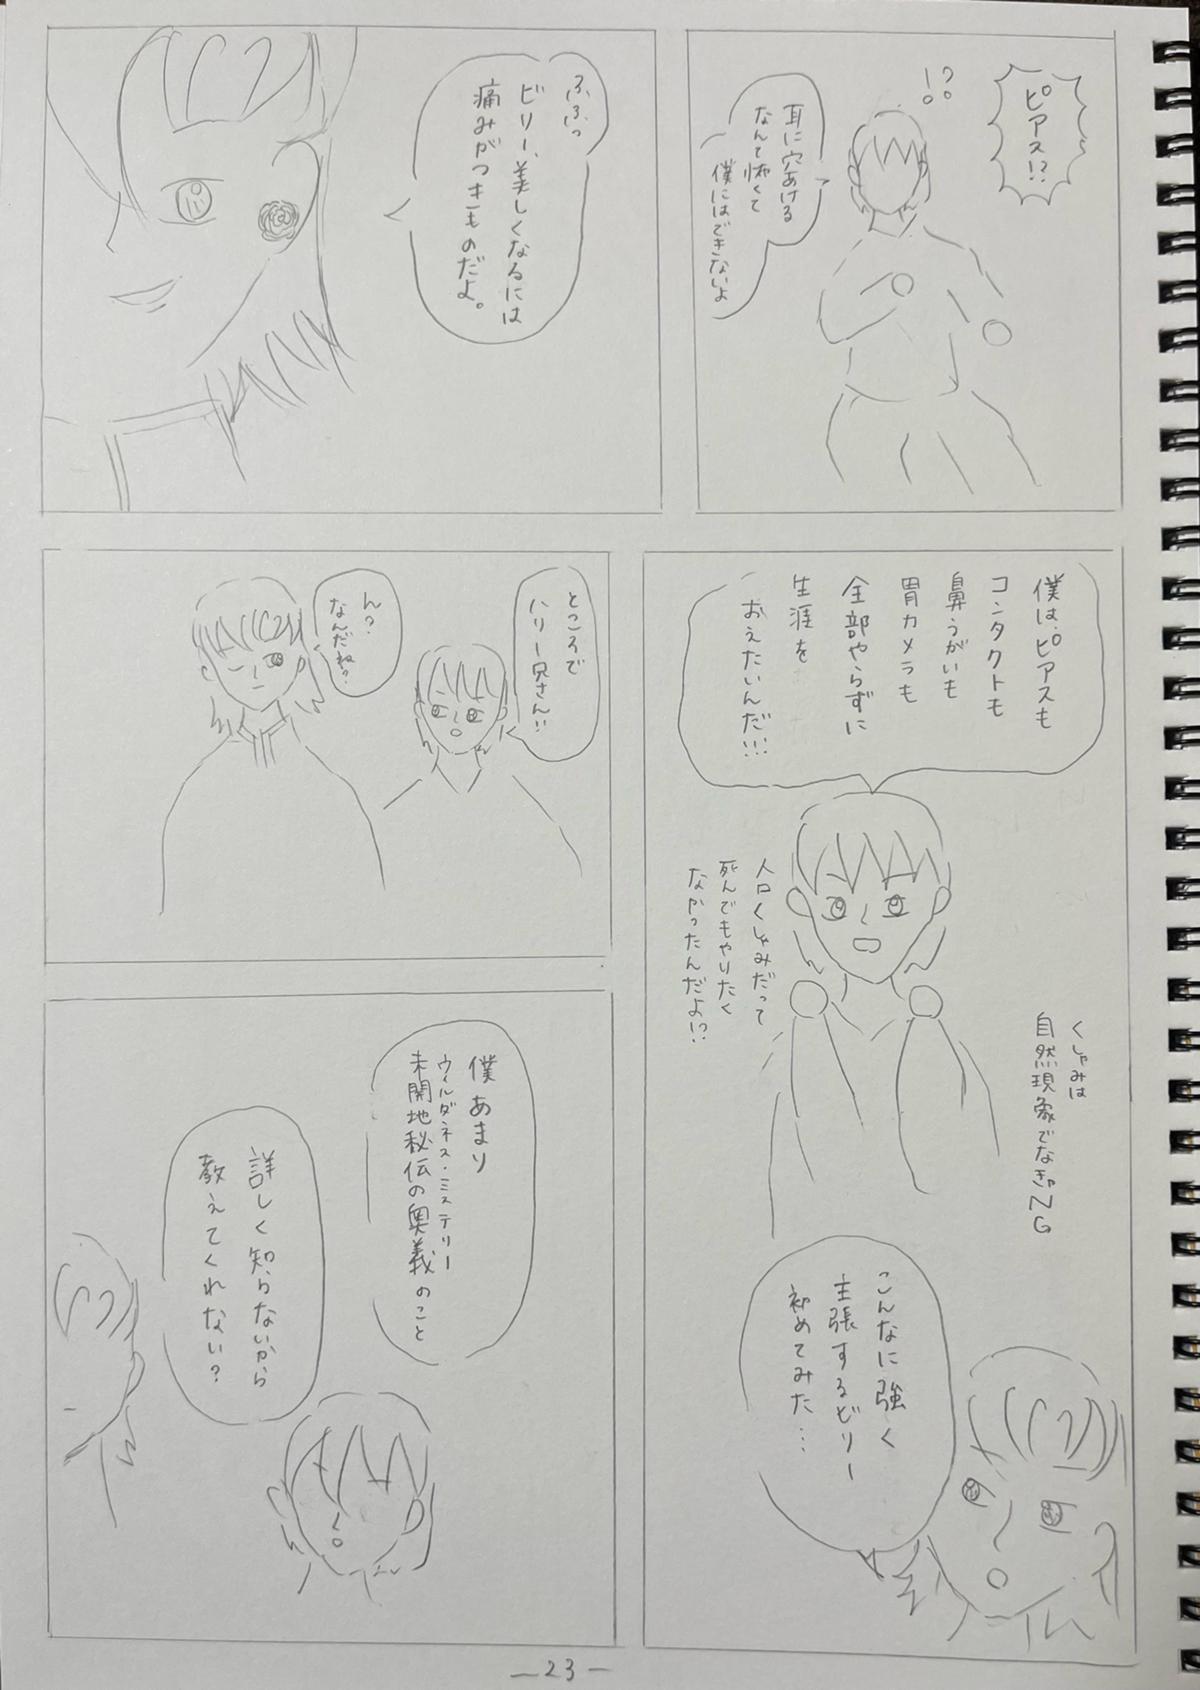 ピアス!?
!?
耳に穴あける
なんて怖くて
僕にはできないよ
ふふっ
ビリー、美しくなるには
痛みがつきものだよ。
僕は、ピアスも
コンタクトも
鼻うがいも
胃カメラも
全部やらずに
生涯を
おえたいんだ!!!
くしゃみは
自然現象でなきゃNG
人口くしゃみだって
死んでもやりたく
なかったんだよ!?
こんなに強く
主張するビリー
初めてみた…
ところで
ハリー兄さん!!
ん?
なんだね?
僕あまり
ウィルダネス・ミステリー
未開地秘伝の奥義のこと
詳しく知らないから
教えてくれない?
—23—